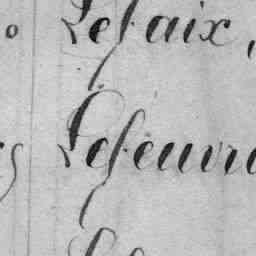 Lefaix,
Lefeuvre